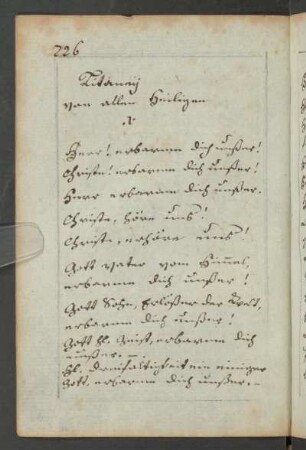 226
Litaneÿ
von allen Heiligen
Herr! erbarme dich unßer!
Christe! erbarme dich unßer!
Herr erbarme dich unßer.
Christe, höre uns!
Christe, erhöre uns!
Gott vater vom Himmel,
erbarme dich unßer!
Gott Sohn, Erlößer der Welt,
erbarme dich unßer!
Gott hl. Geist, erbarme dich
unßer. —
hl. dreifaltigkeit ein einiger
Gott, erbarme dich unßer. –